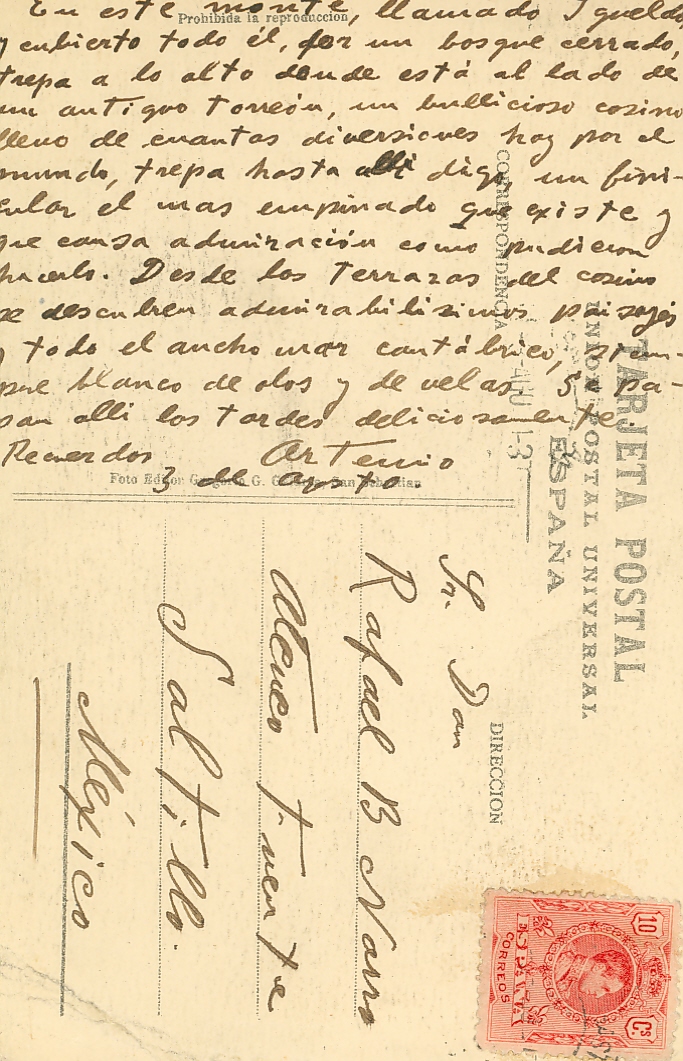 En este monte, llamado Igueldo,
Prohibida la reproducción
y cubierto todo él, por un bosque cerrado,
trepa a lo alto donde está al lado de
un antiguo torreón, un bullicioso casino
lleno de cuantas diversiones hay por el
mundo, trepa hasta alli digo, un funi-
cular el mas empinado que existe y
que causa admiración como pudieron
hacerlo. Desde las terrazas del casino
se descubren admirabilisimos paisajes
y todo el ancho mar cantábrico, siem-
pre blanco de olas y de velas. Se pa-
san alli las tardes deliciosamente.
Recuerdos Artemio
3 de agosto.
Foto Editor Gregorio G. San Sebastian
CORRESPONDENCIA
TARJETA POSTAL
UNION POSTAL UNIVERSAL
ESPAÑA
DIRECCION
Sr. Don
Rafael B Narro
Ateneo Fuente
Saltillo.
México
10 Cs
ESPAÑA
CORREOS